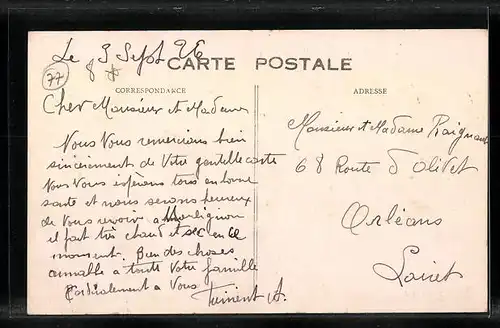 Le 9 Sept 26
77
CARTE POSTALE
CORRESPONDANCE
ADRESSE
Cher Monsieur et Madame
Nous Vous remercions bien
sincèrement de Votre gentille carte
Nous Vous espérons tous en bonne
santé et nous serons heureux
de Vous revoir a
il fait très chaud et sec en ce
moment. Bien des choses
aimable a toute Votre famille
Cordialement a Vous
Monsieur et Madame Raignault
68 Route d'Olivet
Orléans
Loiret